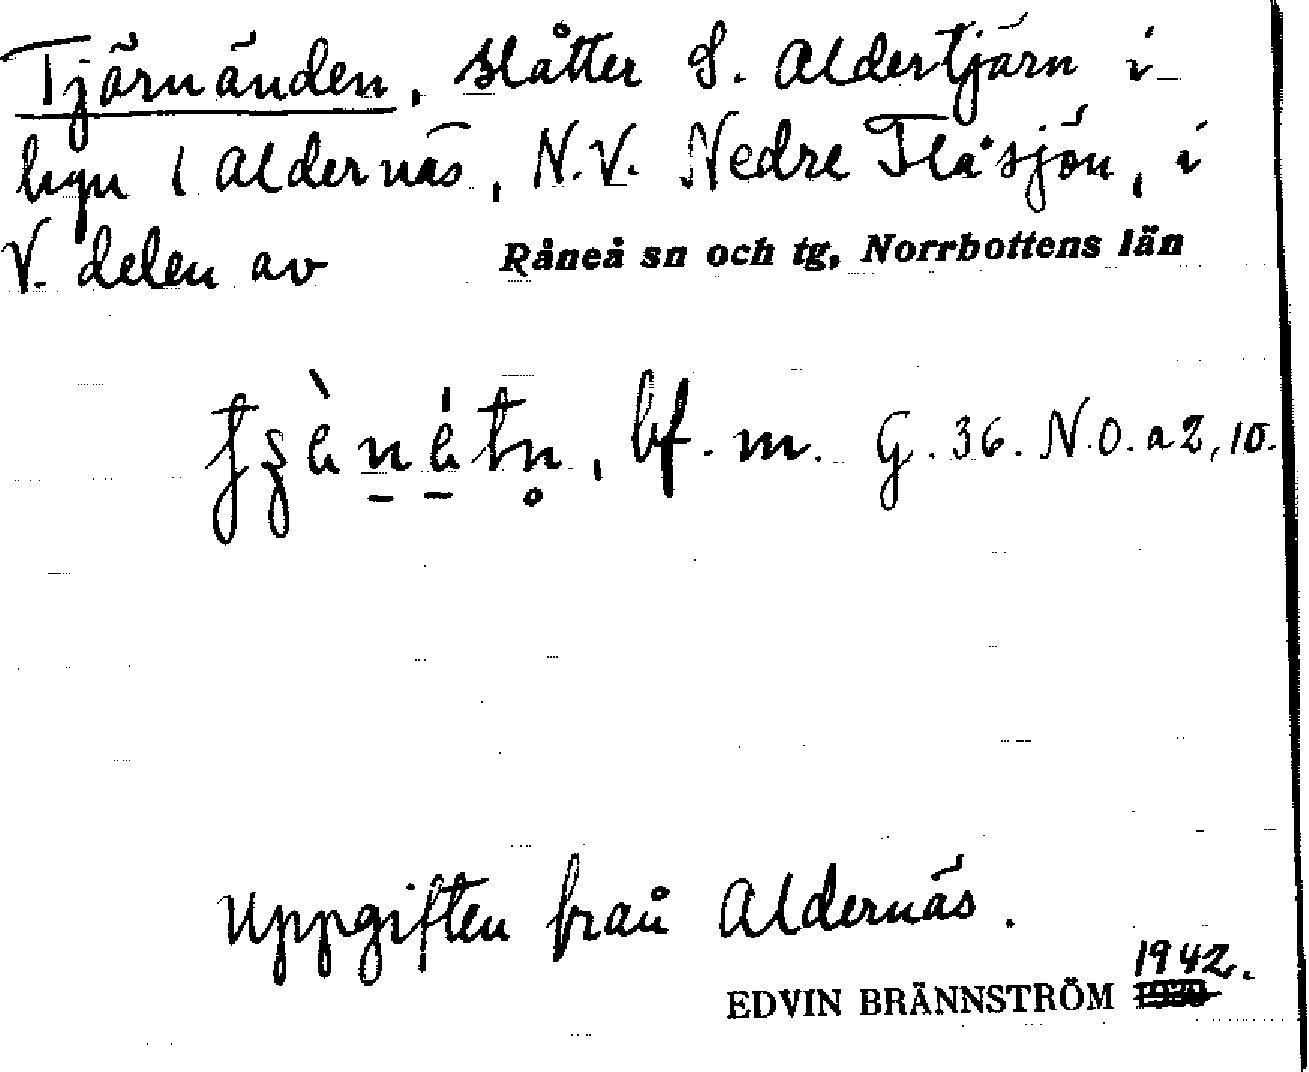 Tjärnänden, slåtter S. Aldertjärn i
byn 1 Aldernäs, N.V. Nedre Flåsjön, i
V. delen av Råneå sn och tg, Norrbottens län
bf. m. G. 36. N.O. a 2, 10.
Uppgiften från Aldernäs.
1942.
EDVIN BRÄNNSTRÖM